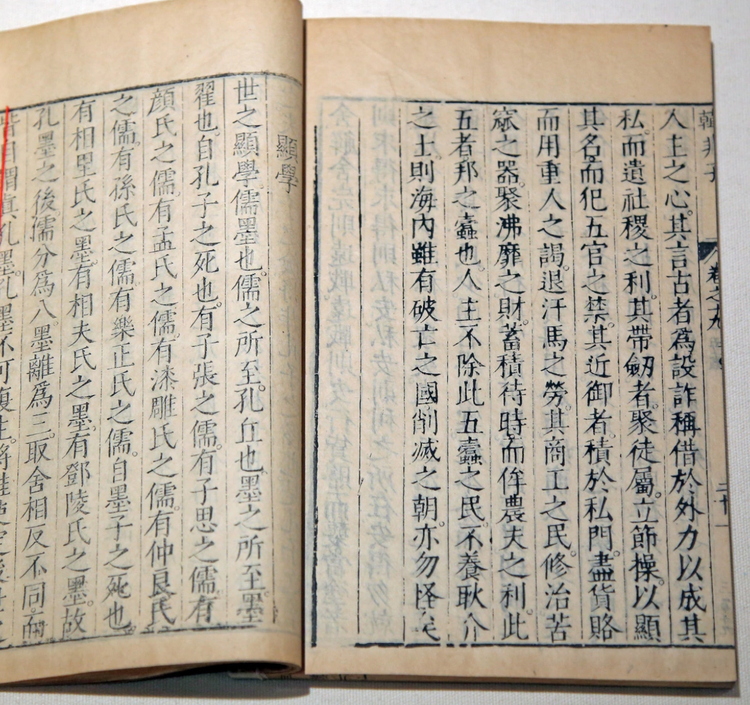 韓非子
卷之九
人主之心。其言古者爲設詐稱借於外力以成其
私。而遺社稷之利。其帶劒者。聚徒屬。立節操。以顯
其名而犯五官之禁。其近御者積於私門。盡貨賂
而用重人之謁。退汗馬之勞。其商工之民。修治苦
窳之器。聚沸靡之財。蓄積待時而侔農夫之利。此
五者邦之蠹也。人主不除此五蠹之民。不養耿介
之士。則海內雖有破亡之國。削滅之朝。亦勿怪矣
顯學
世之顯學。儒墨也。儒之所至。孔丘也。墨之所至。墨
翟也。自孔子之死也。有子張之儒。有子思之儒。有
顏氏之儒。有孟氏之儒。有漆雕氏之儒。有仲良氏
之儒。有孫氏之儒。有樂正氏之儒。自墨子之死也
有相里氏之墨。有相夫氏之墨。有鄧陵氏之墨。故
孔墨之後。儒分爲八。墨離爲三。取舍相反不同。而
皆自謂眞孔墨。孔墨不可復生。將誰使定後世之